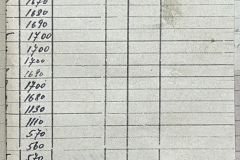 1670
1680
1690
1700
1700
1700
1690
1700
1680
1130
1110
570
560
570